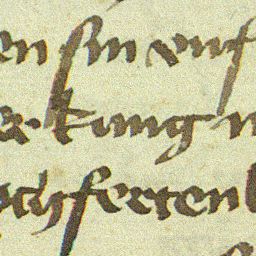 en sin vnf
er kung n
ochferten